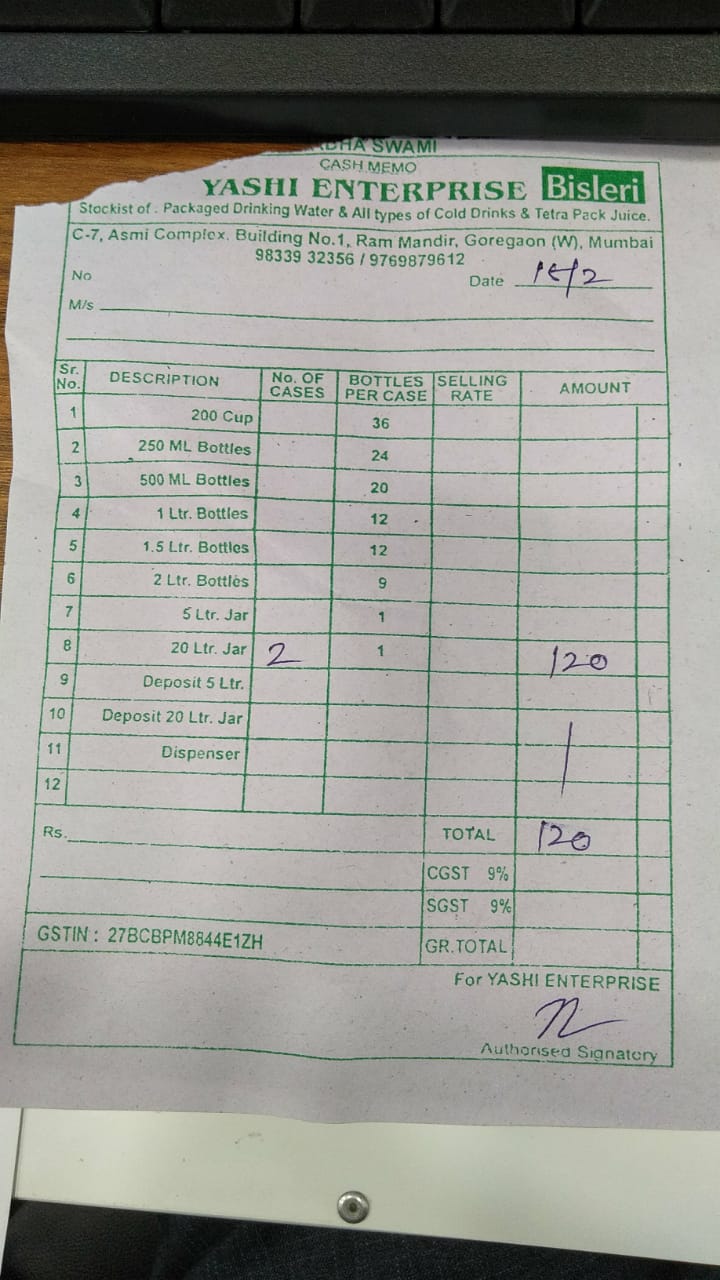 SWAMI
CASH MEMO
YASHI ENTERPRISE Bisleri
Stockist of . Packaged Drinking Water & All types of Cold Drinks & Tetra Pack Juice.
C-7, Asmi Complex. Building No.1, Ram Mandir, Goregaon (W), Mumbai
98339 32356 / 9769879612
No
Date
M/s
Sr. No. DESCRIPTION No. OF CASES BOTTLES PER CASE SELLING RATE AMOUNT
1 200 Cup 36
2 250 ML Bottles 24
3 500 ML Bottles 20
4 1 Ltr. Bottles 12
5 1.5 Ltr. Bottles 12
6 2 Ltr. Bottles 9
7 5 Ltr. Jar 1
8 20 Ltr. Jar 2 1 120
9 Deposit 5 Ltr.
10 Deposit 20 Ltr. Jar
11 Dispenser
12
Rs. TOTAL 120
CGST 9%
SGST 9%
GSTIN : 27BCBPM8844E1ZH GR.TOTAL
For YASHI ENTERPRISE
Authorised Signatory